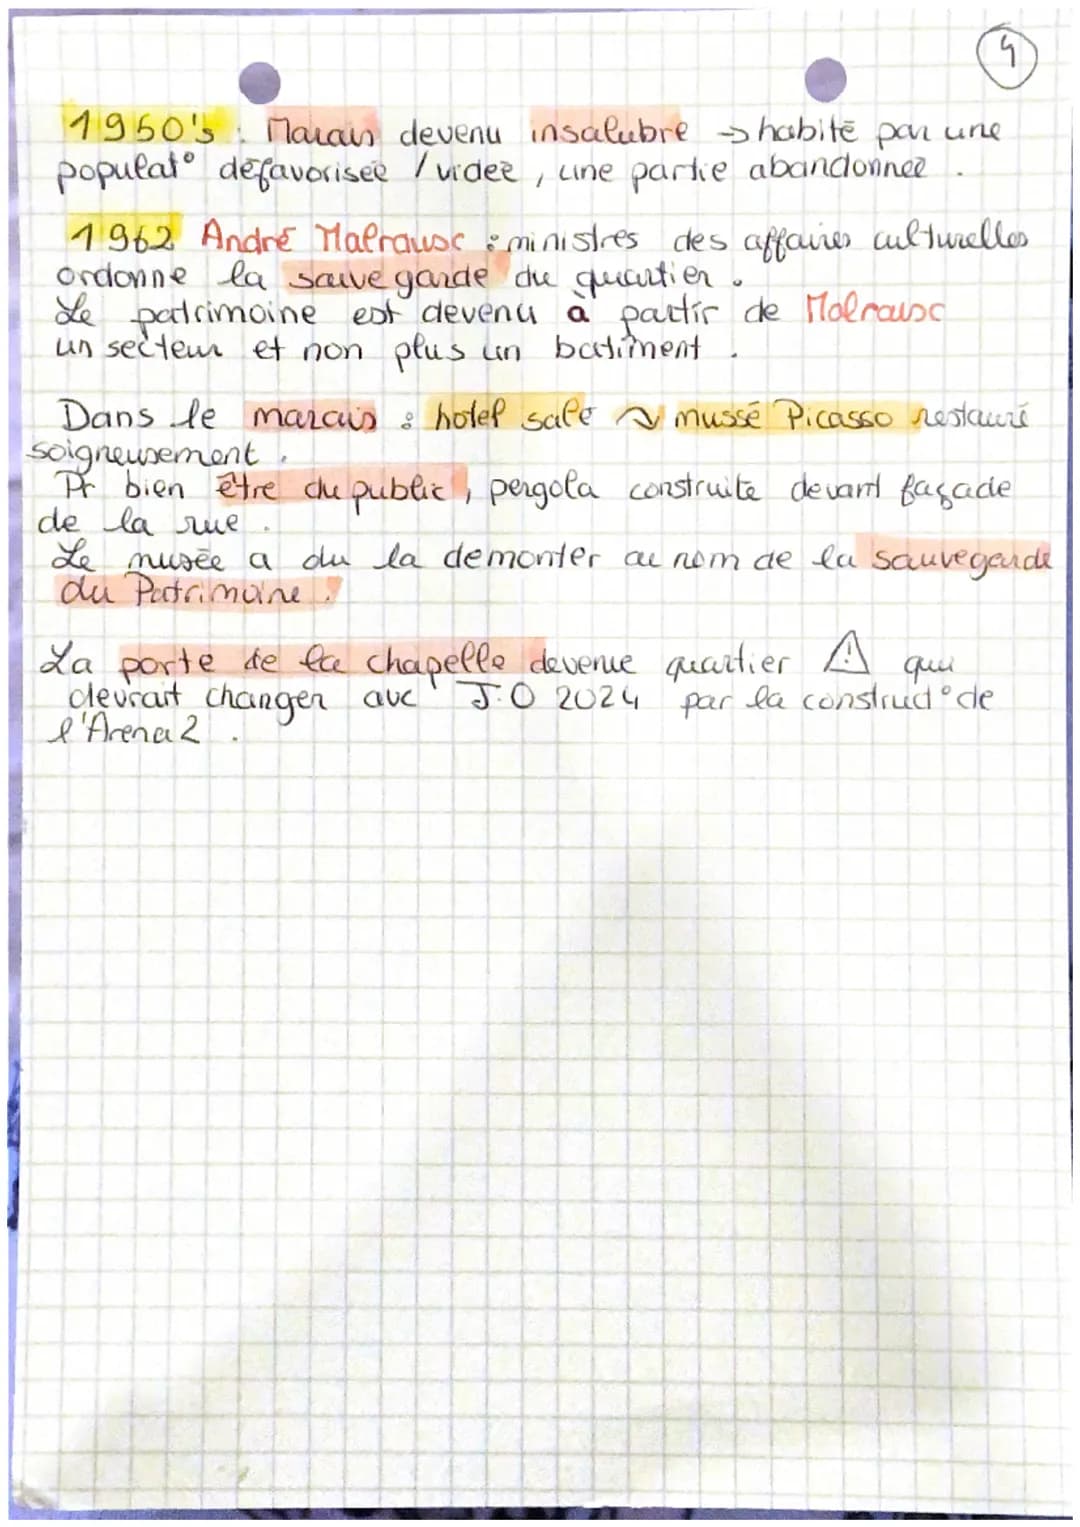 4
1950's : Marais devenu insalubre → habité par une
populat° défavorisée / videe, une partie abandonnee.
1962 André Malraux : ministres des affaires culturelles
ordonne la sauvegarde du quartier.
Le patrimoine est devenu à partir de Malraux
un secteur et non plus un batiment.
Dans le marais : hotel sale ~> mussé Picasso restauré
soigneusement.
Pr bien être du public, pergola construite devant façade
de la rue.
Le musée a du la demonter au nom de la sauvegarde
du Patrimoine.
La porte de la chapelle devenue quartier ⚠ qui
devrait changer avc J.O 2024 par la construct° de
l'Arena 2.